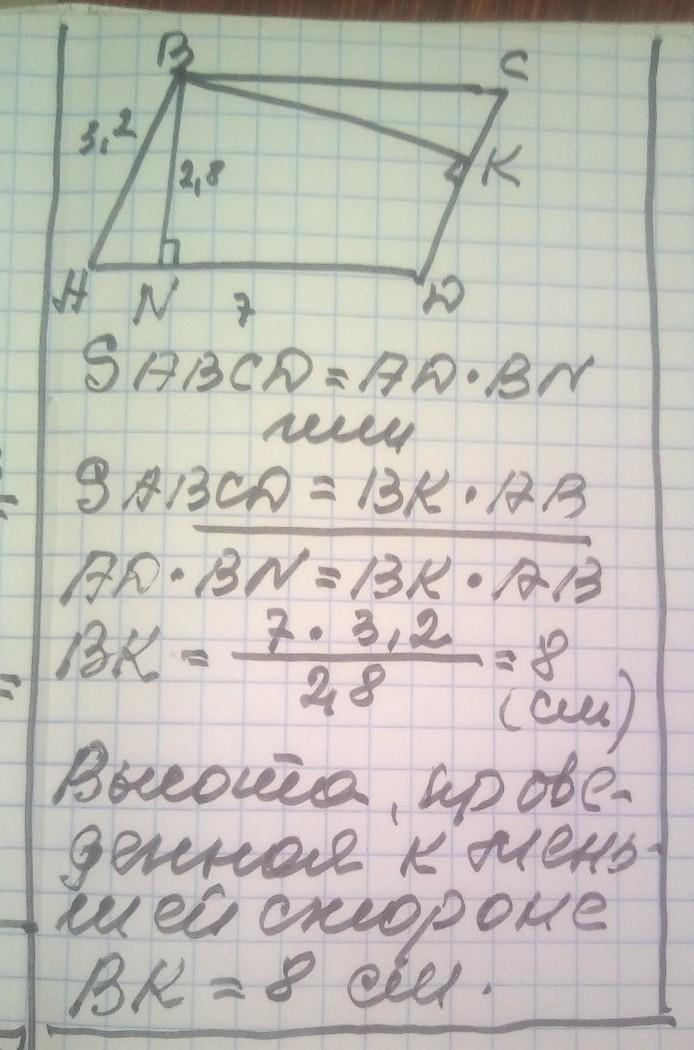 B
C
3,2
2,8
K
A
N
7
D
SABCD = AD · BN
или
SABCD = BK · AB
AD · BN = BK · AB
BK = 7 · 3,2 / 2,8 = 8
(см)
Высота, прове-
денная к мень-
шей стороне
BK = 8 см.